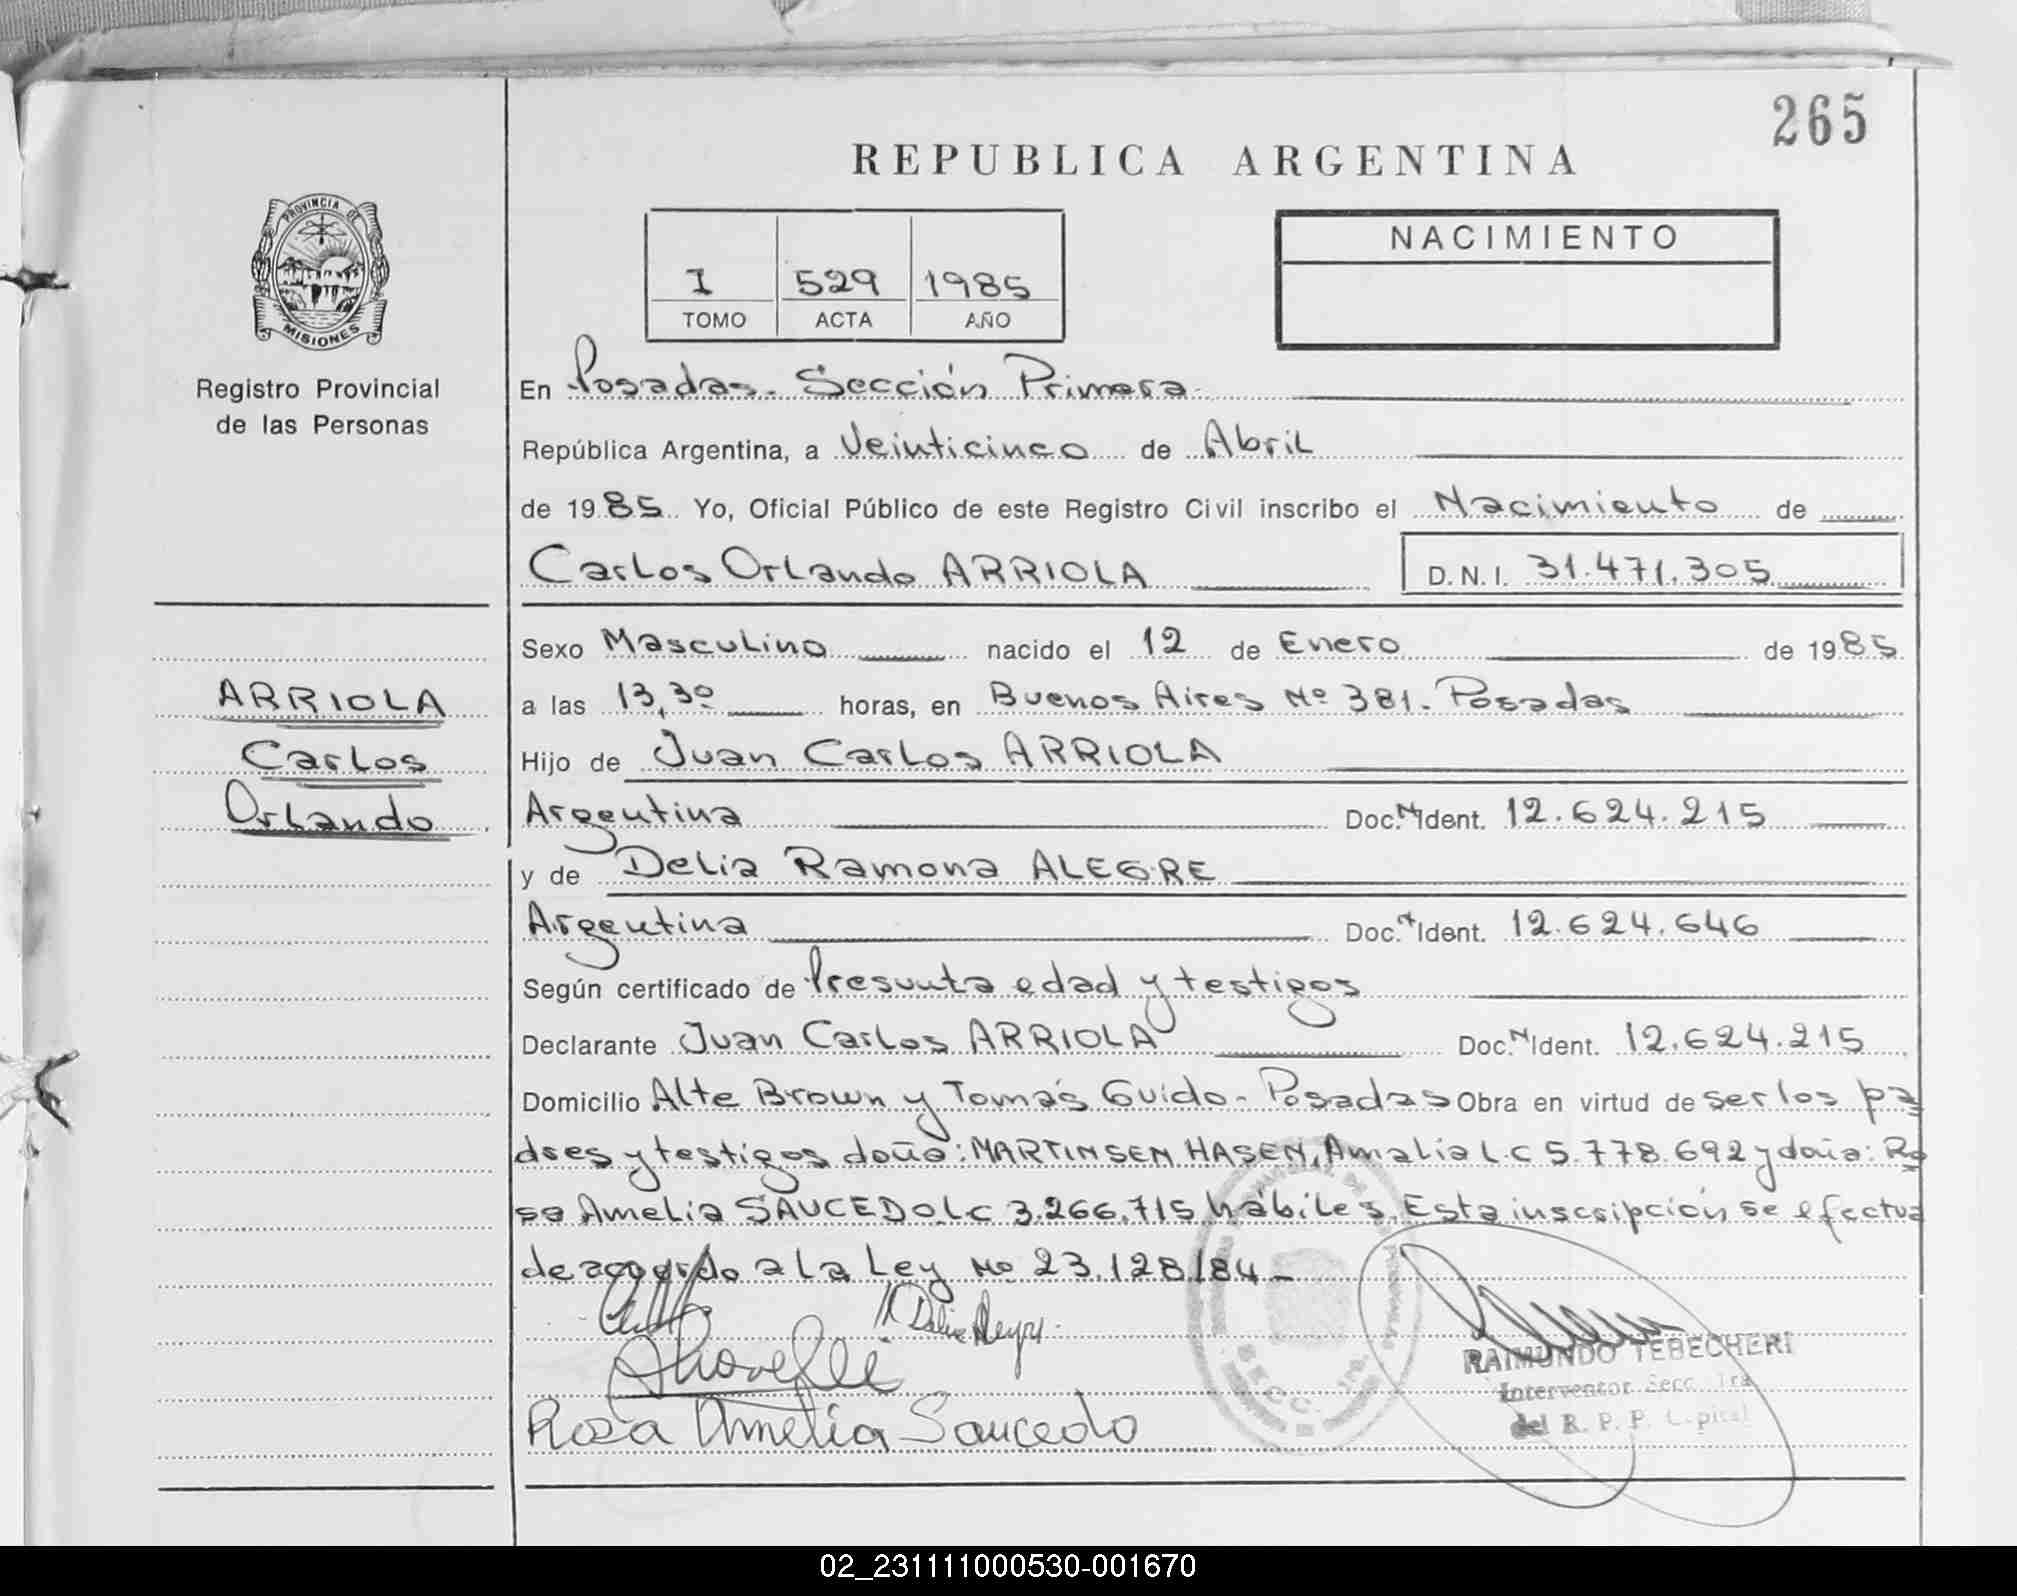 265
REPUBLICA ARGENTINA
PROVINCIA DE
MISIONES
Registro Provincial
de las Personas
I 529 1985
TOMO ACTA AÑO
NACIMIENTO
En Posadas. Sección Primera
República Argentina, a Veinticinco de Abril
de 1985 Yo, Oficial Público de este Registro Civil inscribo el Nacimiento de
Carlos Orlando ARRIOLA D.N.I. 31.471.305
Sexo Masculino nacido el 12 de Enero de 1985
ARRIOLA
Carlos
Orlando
a las 13,30 horas, en Buenos Aires Nº 381. Posadas
Hijo de Juan Carlos ARRIOLA
Argentina Doc. N Ident. 12.624.215
y de Delia Ramona ALEGRE
Argentina Doc. N Ident. 12.624.646
Según certificado de Presunta edad y testigos
Declarante Juan Carlos ARRIOLA Doc. N Ident. 12.624.215
Domicilio Alte Brown y Tomás Guido - Posadas Obra en virtud de ser los pa
dres y testigos doña: MARTINSEN HASEN, Amalia L C 5.778.692 y doña: Ro
sa Amelia SAUCEDO. LC 3.266.715 hábiles. Esta inscripción se efectua
de acuerdo a la Ley Nº 23.128/84 -
Rosa Amelia Saucedo
RAIMUNDO TEBECHERI
Interventor Secc. 1ra
del R. P. P. Capital
SECC. 1ra.
02_231111000530-001670